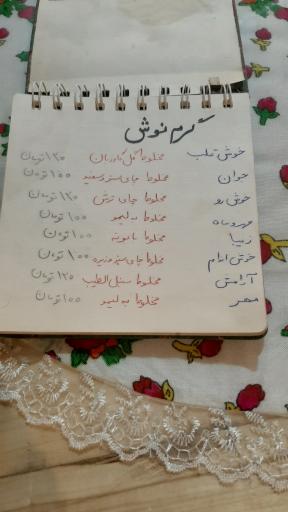 گرم نوش
خوش قلب مخلوط گل گاوزبان ۱۲۰ تومان
جوان مخلوط چای سبز و سفید ۱۰۰ تومان
خوش رو مخلوط چای ترش ۱۲۰ تومان
مخلوط به لیمو ۱۰۰ تومان
زیبا مخلوط بابونه ۱۰۰ تومان
خوش اندام مخلوط چای سبز و زیره ۱۰۰ تومان
آرامش مخلوط سنبل الطیب ۱۲۰ تومان
مهر مخلوط به لیمو ۱۰۰ تومان